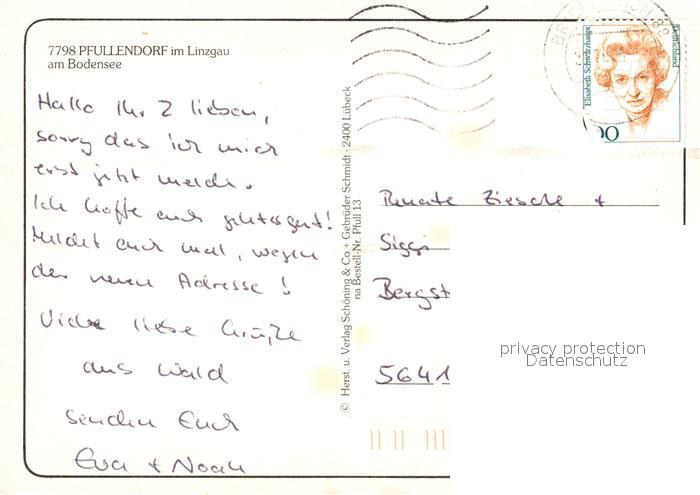 7798 PFULLENDORF im Linzgau
am Bodensee
Hallo ihr 2 lieben,
sorry das ich mich
erst jetzt melde.
Ich hoffe euch geht's gut!
Meldet euch mal, wegen
der neuen Adresse!
Viele liebe Grüße
aus Wald
senden Euch
Eva + Noah
© Herst. u. Verlag Schöning & Co + Gebrüder Schmidt · 2400 Lübeck
na Bestell-Nr. Pfull 13
Elisabeth Schwarzhaupt
Deutschland
00
Renate Ziesche +
Siggi
Bergst
5641
privacy protection
Datenschutz